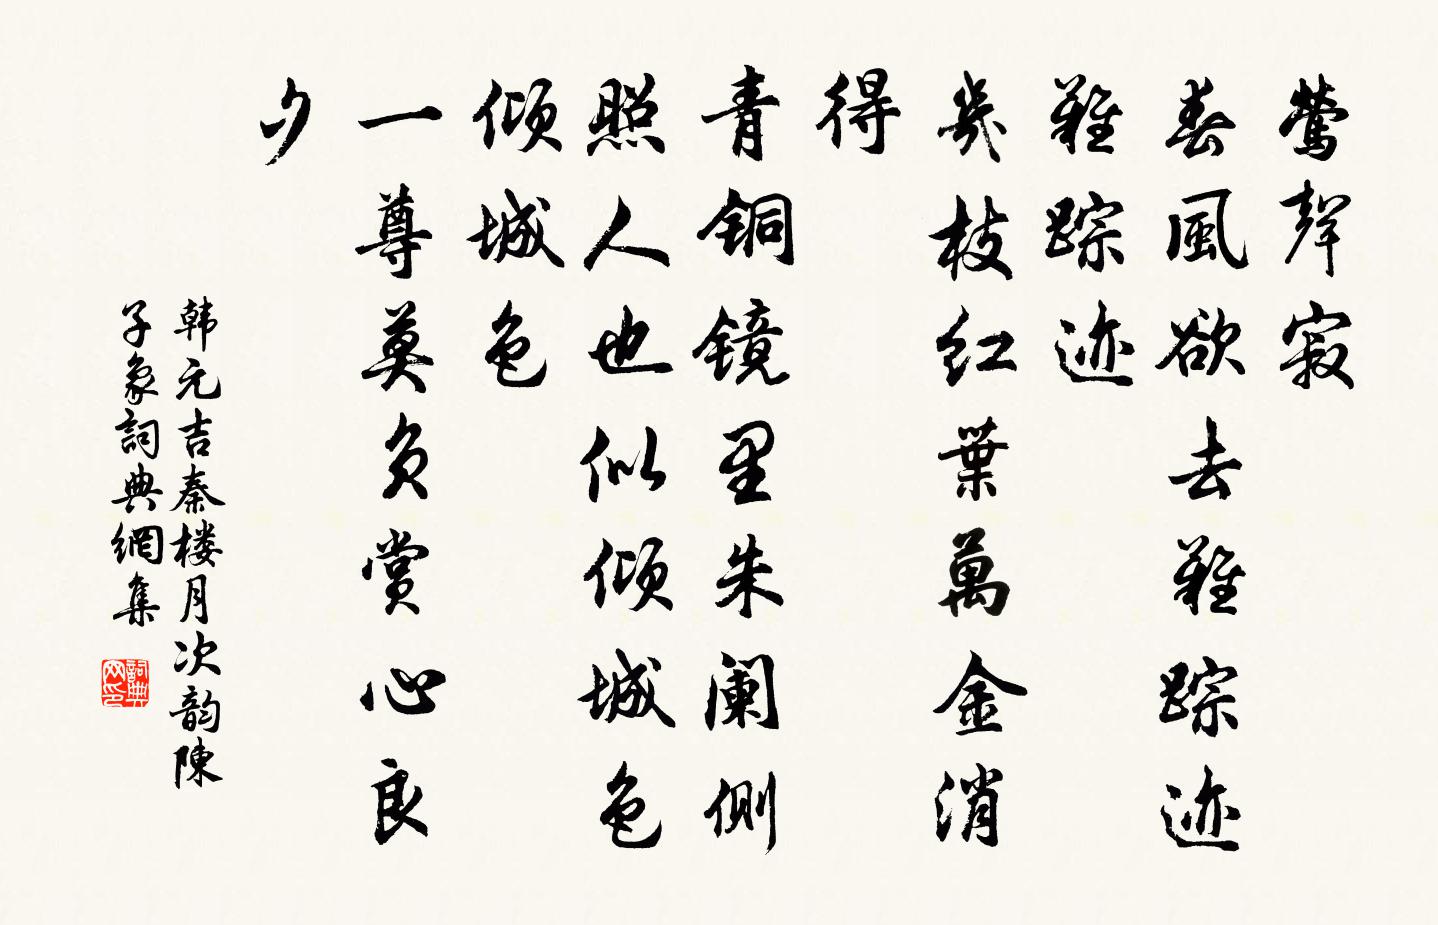 莺聲寂
春風欲去難踪迹
難踪迹
幾枝紅葉萬金消
得
青铜镜里朱阑側
照人也似倾城色
倾城色
一尊莫负赏心良
夕
韩元吉秦楼月次韵陳
子象詞典網集
詞典网印